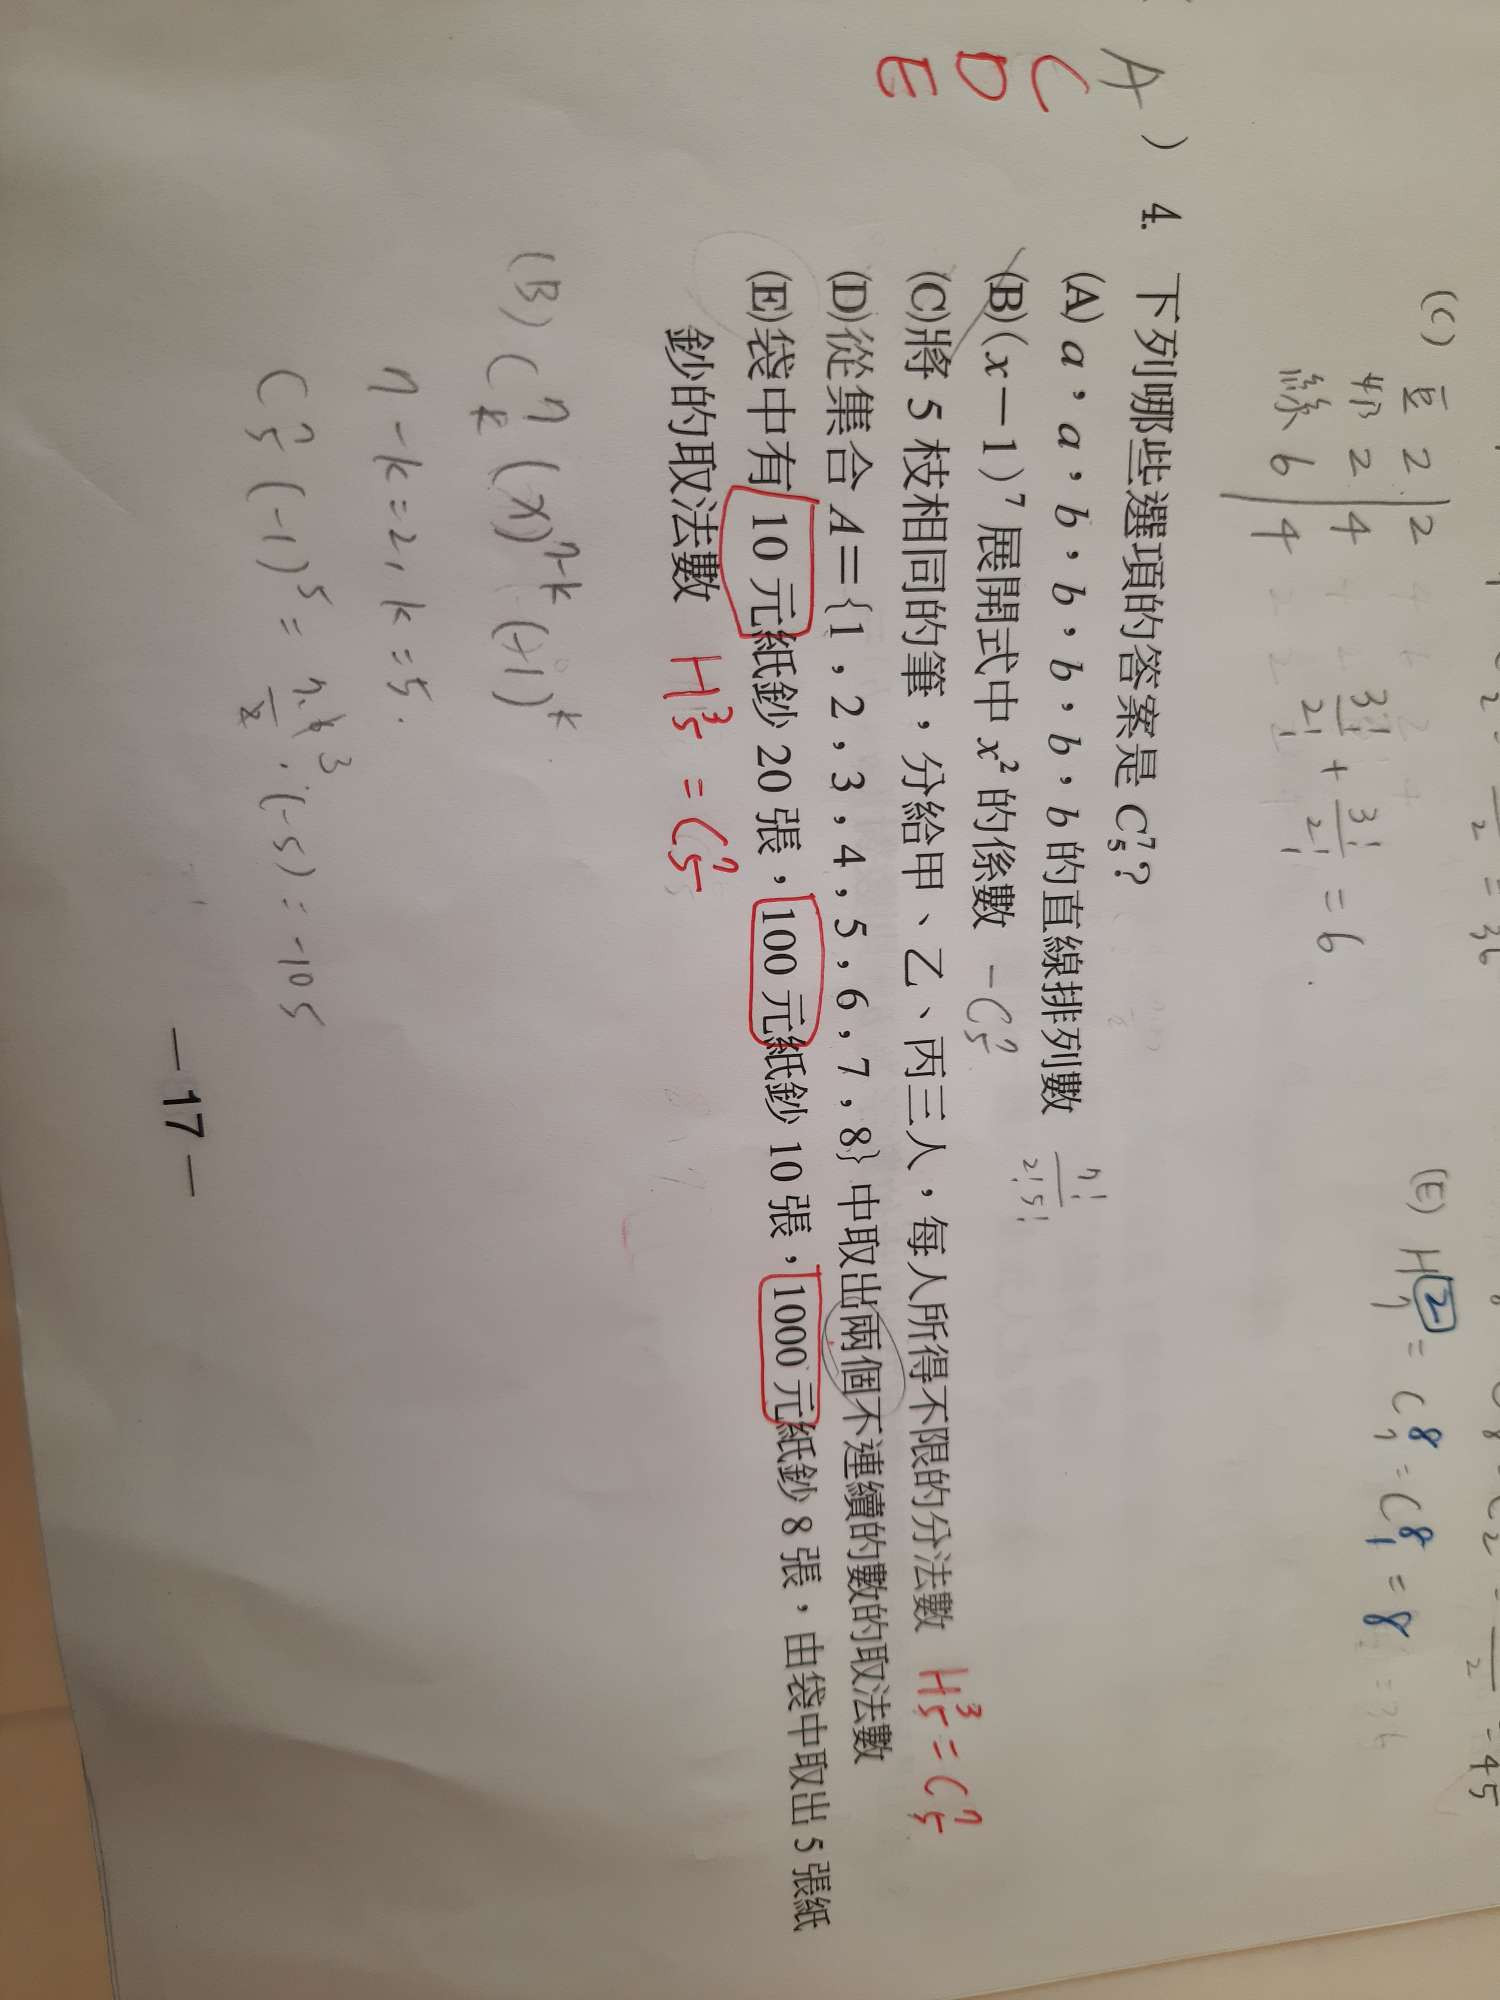 (C) 豆 2 2
奶 2 4
綠 6 4
3!/2! + 3!/2! = 6
(E) H²₇ = C⁸₇ = C⁸₁ = 8
= 36
= 45
A
C
D
E
) 4. 下列哪些選項的答案是 C⁷₅？
(A) a，a，b，b，b，b，b 的直線排列數 7!/2!5!
(B) (x－1)⁷ 展開式中 x² 的係數 -C⁷₅
(C)將 5 枝相同的筆，分給甲、乙、丙三人，每人所得不限的分法數 H³₅ = C⁷₅
(D)從集合 A＝{1，2，3，4，5，6，7，8} 中取出兩個不連續的數的取法數
(E)袋中有 10 元紙鈔 20 張，100 元紙鈔 10 張，1000 元紙鈔 8 張，由袋中取出 5 張紙
鈔的取法數 H³₅ = C⁷₅
(B) C⁷ₖ (x)⁷⁻ᵏ (-1)ᵏ
7-k=2, k=5.
C⁷₅ (-1)⁵ = 7.6 3/2 · (-5) = -105
— 17 —